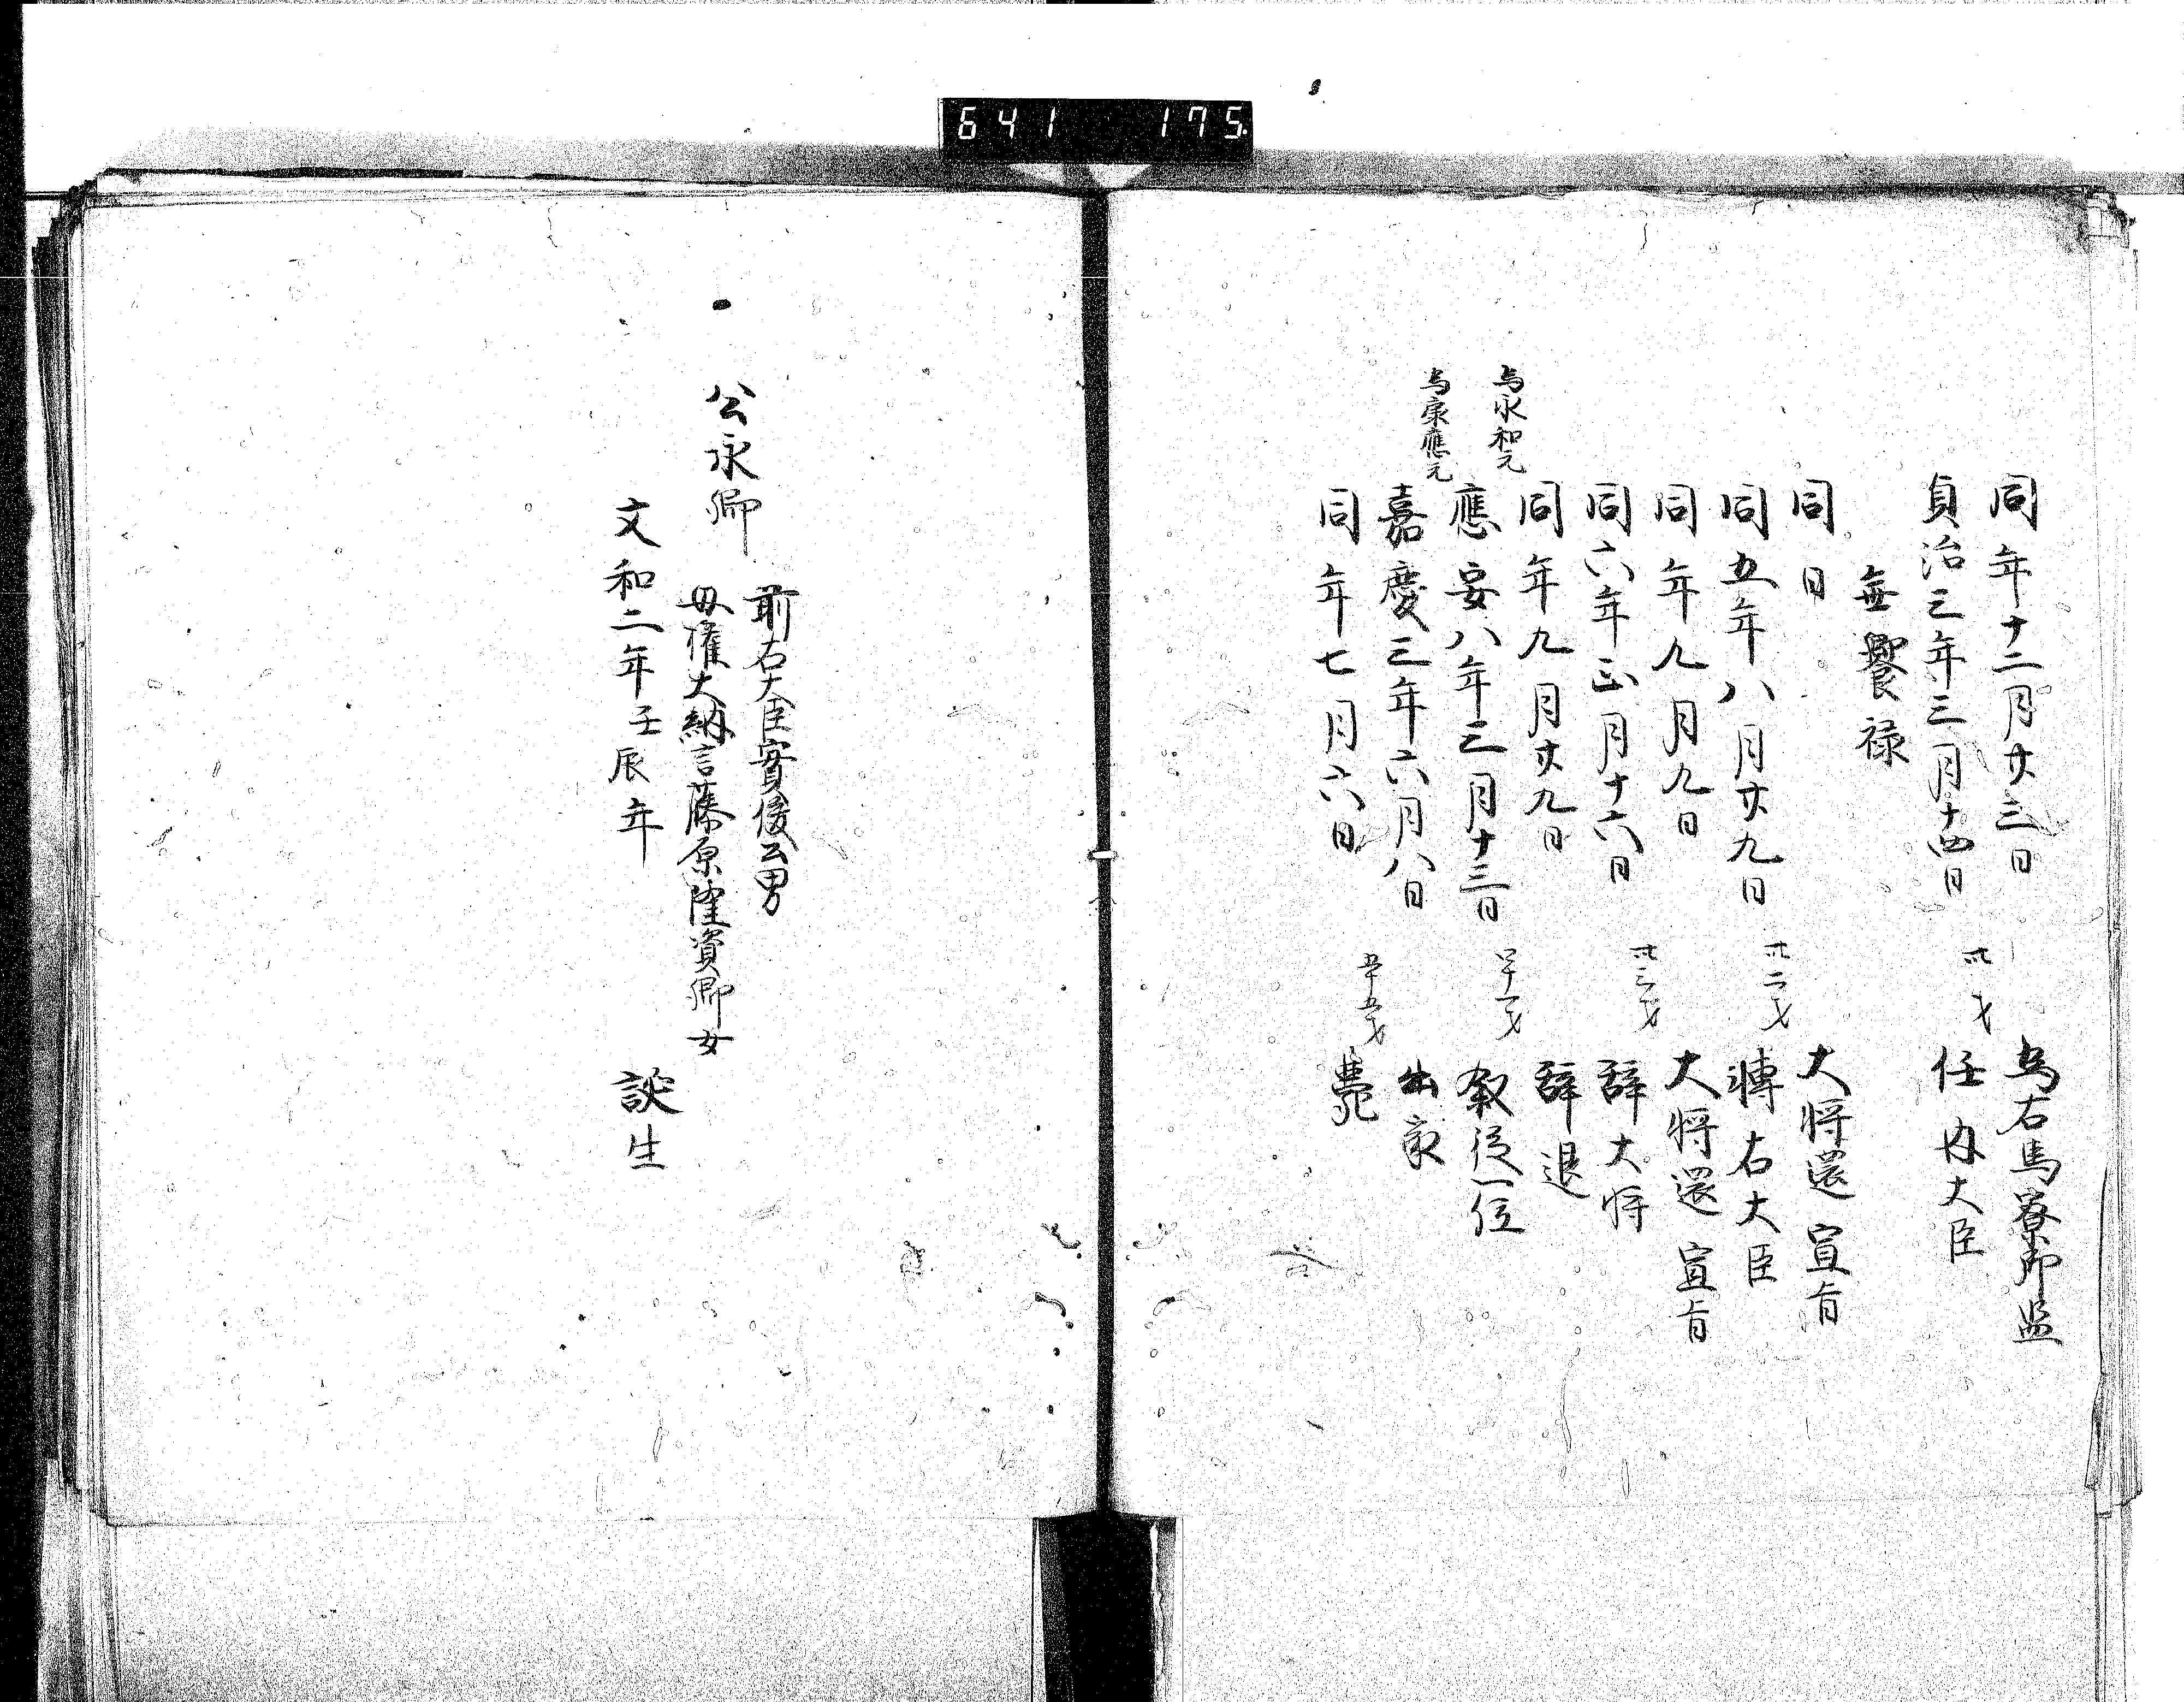 641 175
同年十二月廿三日 為右馬寮御監
貞治三年三月十四日 卅一才 任内大臣
無饗禄
同日 大将還宣旨
同五年八月廿九日 卅二才 轉右大臣
同年九月九日 大将還宣旨
同六年正月十六日 卅三才 辞大将
同年九月廿九日 辞退
為永和元
應安八年三月十三日 四十一才 叙従一位
為康應元
嘉慶三年六月八日 出家
同年七月六日 五十五才 薨
公永卿
前右大臣實俊公男
母権大納言藤原隆資卿女
文和二年壬辰年 誕生